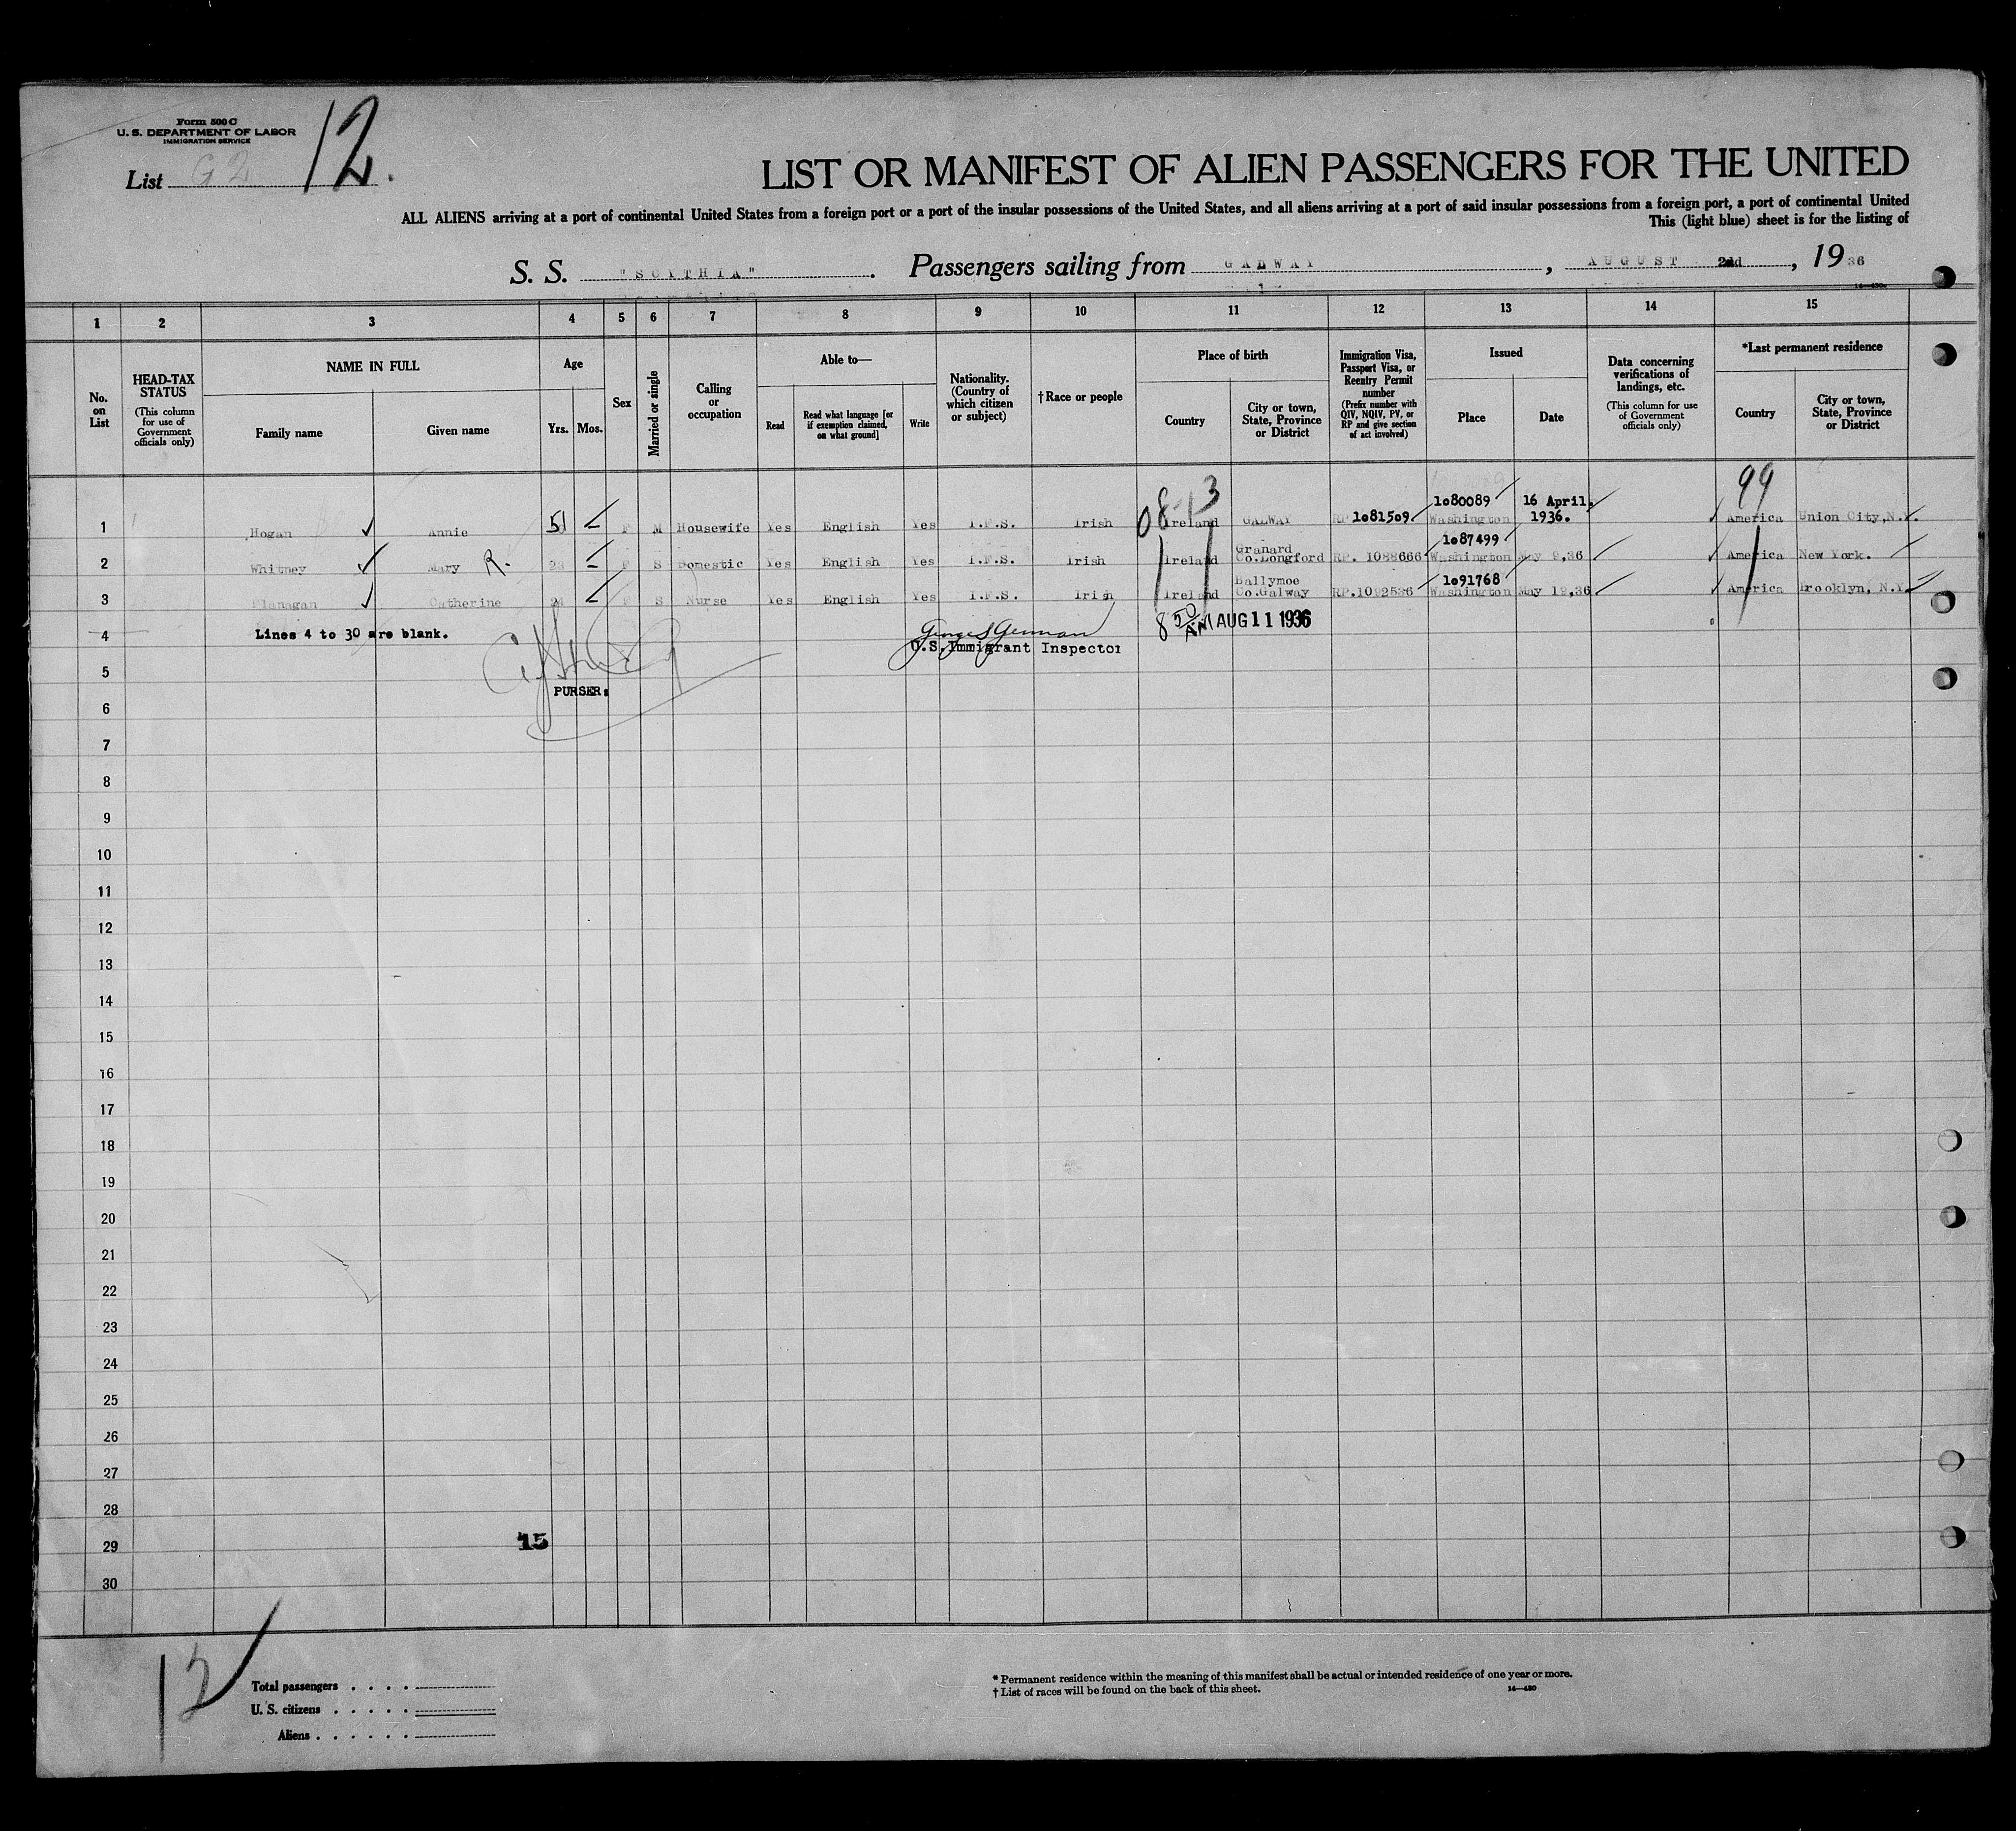 Form 500 C
U. S. DEPARTMENT OF LABOR
IMMIGRATION SERVICE
List G 2 12.
LIST OR MANIFEST OF ALIEN PASSENGERS FOR THE UNITED
ALL ALIENS arriving at a port of continental United States from a foreign port or a port of the insular possessions of the United States, and all aliens arriving at a port of said insular possessions from a foreign port, a port of continental United
This (light blue) sheet is for the listing of
S. S. "SCYTHIA". Passengers sailing from GALWAY, AUGUST 2nd, 1936
1 2 3 4 5 6 7 8 9 10 11 12 13 14 15
No. on List
HEAD-TAX STATUS
(This column for use of Government officials only)
NAME IN FULL
Family name Given name
Age
Yrs. Mos.
Sex
Married or single
Calling or occupation
Able to—
Read
Read what language [or if exemption claimed, on what ground]
Write
Nationality. (Country of which citizen or subject)
†Race or people
Place of birth
Country
City or town, State, Province or District
Immigration Visa, Passport Visa, or Reentry Permit number
(Prefix number with QIV, NQIV, PV, or RP and give section of act involved)
Issued
Place Date
Data concerning verifications of landings, etc.
(This column for use of Government officials only)
*Last permanent residence
Country
City or town, State, Province or District
99
1080089 16 April,
1 Hogan Annie 51 F M Housewife Yes English Yes I.F.S. Irish Ireland GALWAY RP 1081509. Washington 1936. America Union City, N.Y.
1087499
2 Whitney Mary R. F S Domestic Yes English Yes I.F.S. Irish Ireland Granard Co.Longford RP. 1088666 Washington May 9,36 America New York.
1091768
3 Flanagan Catherine F S Nurse Yes English Yes I.F.S. Irish Ireland Ballymoe Co.Galway RP.1092536 Washington May 19,36 America Brooklyn, N.Y.
4 Lines 4 to 30 are blank.
George S German
8 50 AM AUG 11 1936
U.S. Immigrant Inspector
5
PURSER.
6
7
8
9
10
11
12
13
14
15
16
17
18
19
20
21
22
23
24
25
26
27
28
29 15
30
12
Total passengers . . . .
U. S. citizens . . . . .
Aliens . . . . . .
* Permanent residence within the meaning of this manifest shall be actual or intended residence of one year or more.
† List of races will be found on the back of this sheet.
14—430